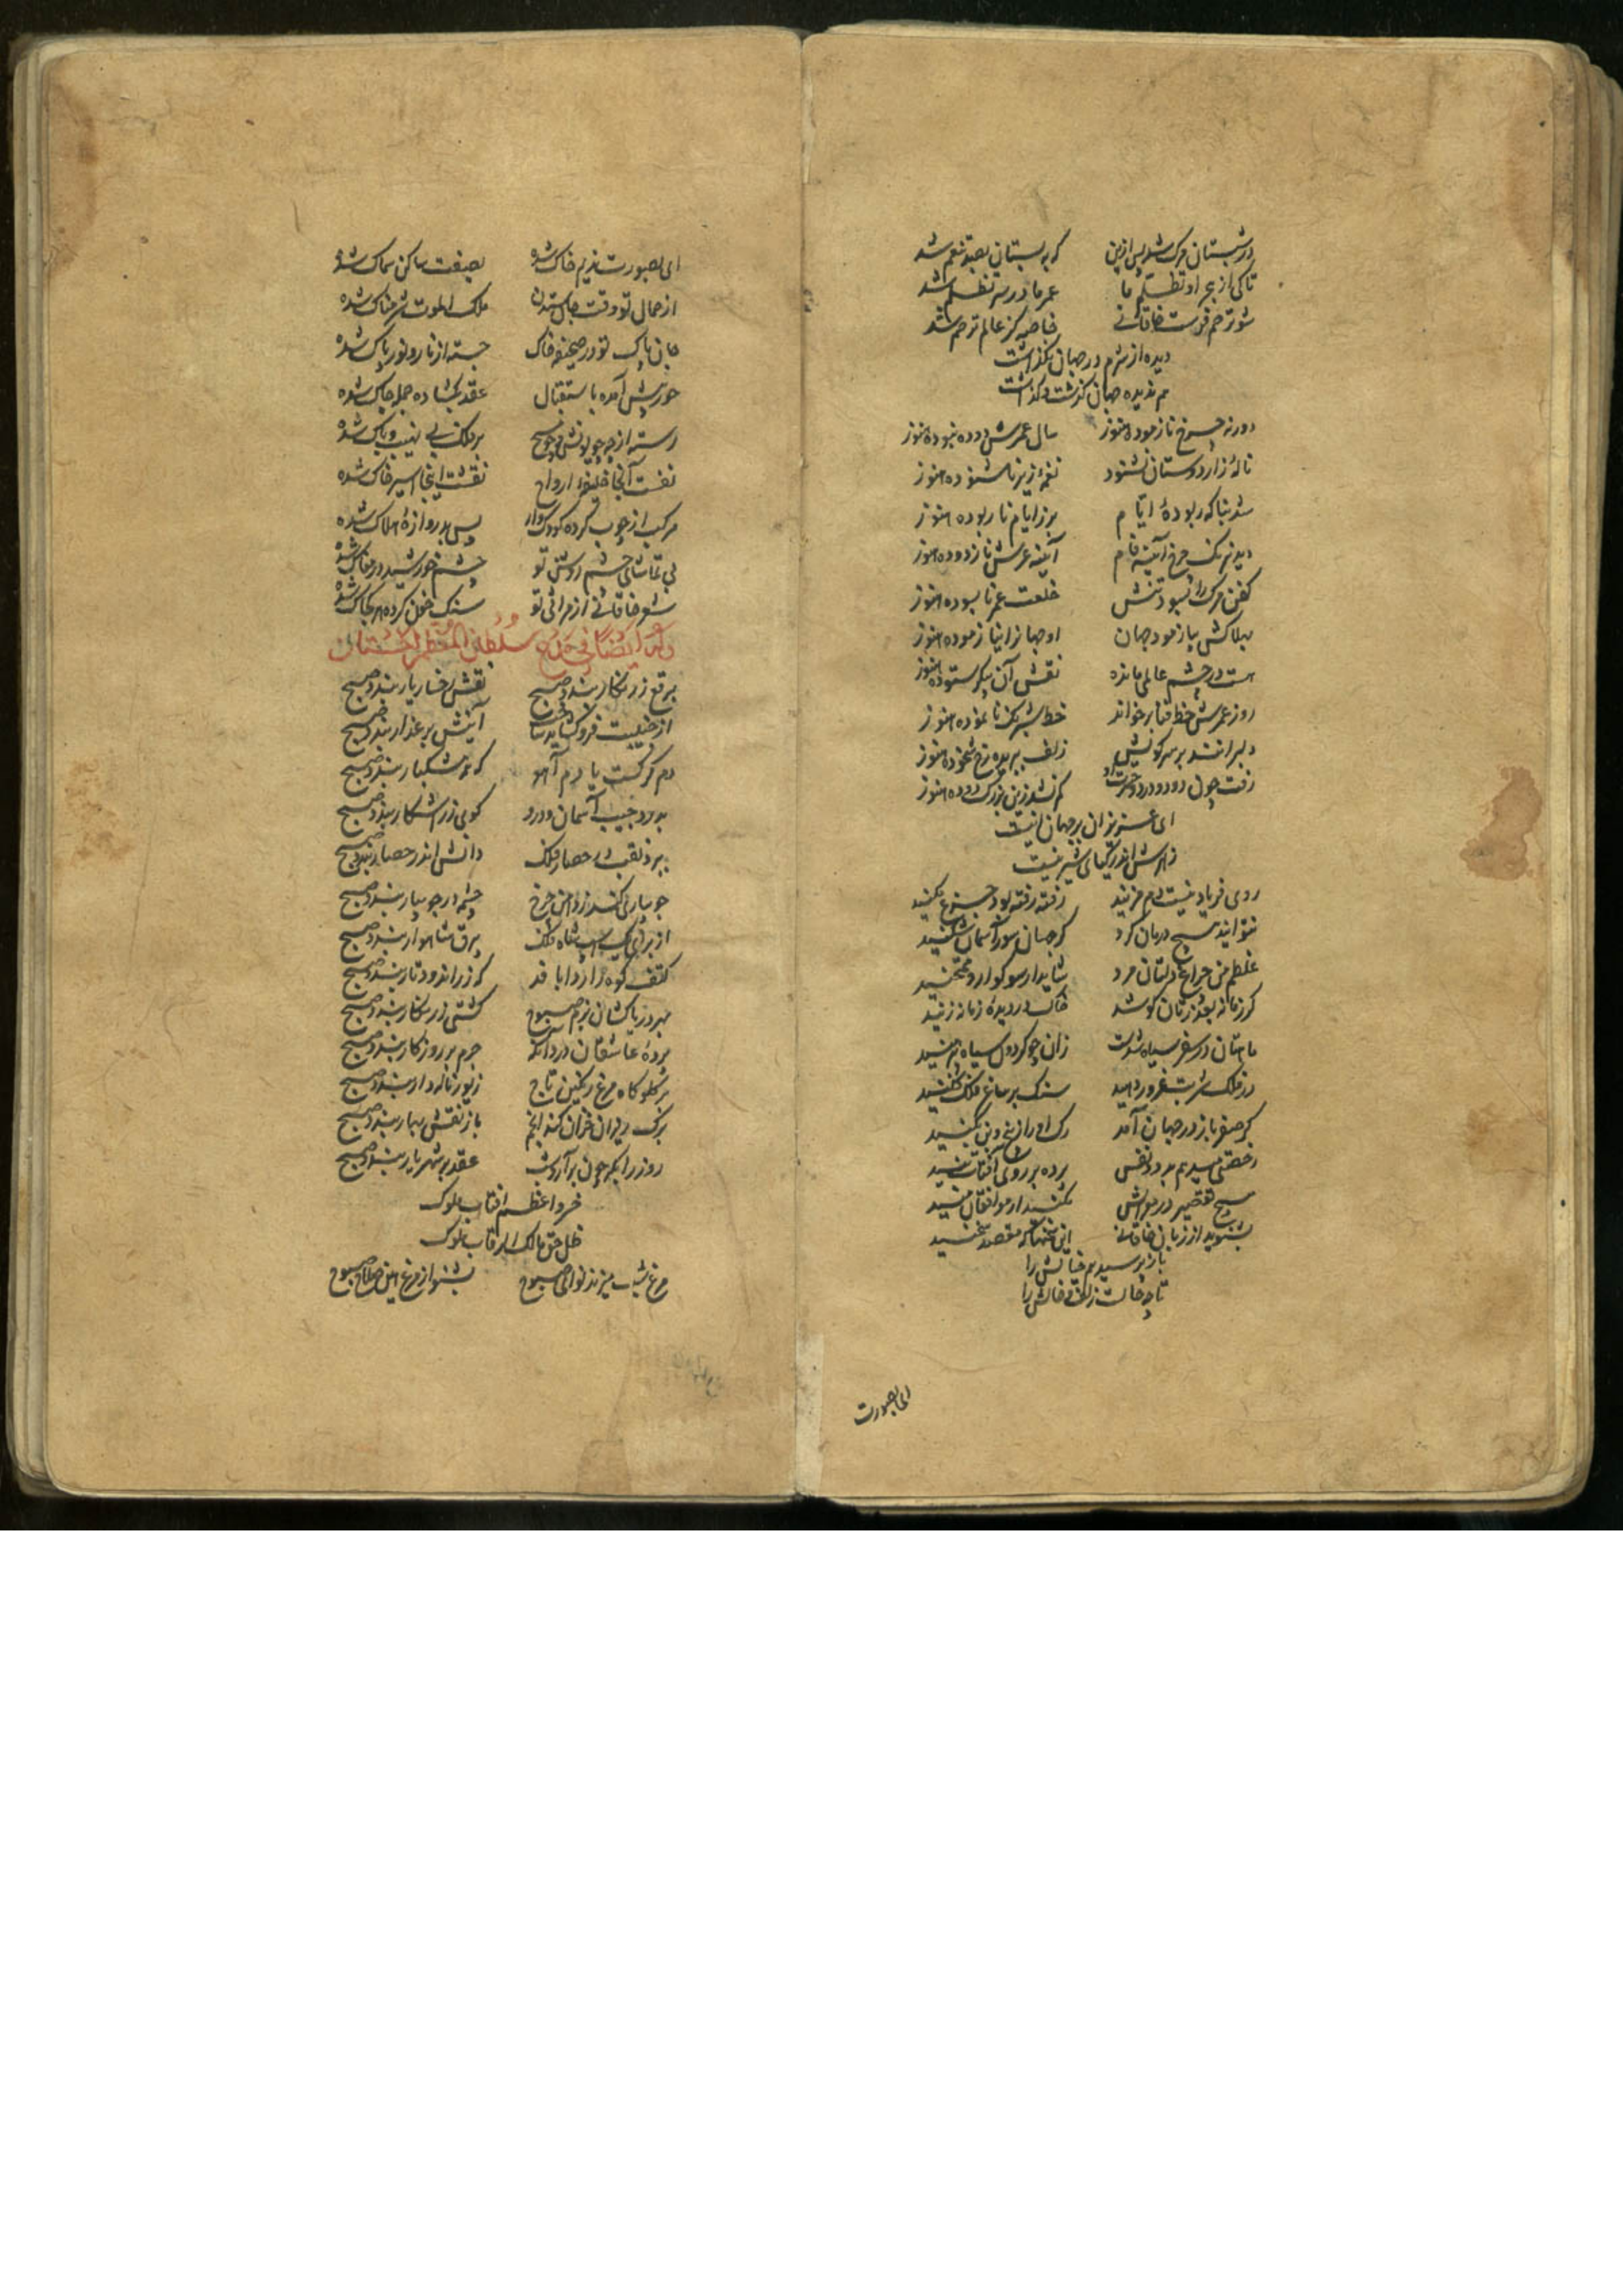 در شبستان مرک شد پس ازین که به بستان بصد تنعم شد
تا کی از هجر او تظلم ما عمر ما در سر تظلم شد
شو ترحم فرست خاقانی خاصه کز عالم ترحم شد
دیده از شرم در جهان نکذاشت
هم ندیده جهان کذشت و کذاشت
دور نه چرخ نازموده هنوز سال عمرش دو ده نبوده هنوز
نالهٔ زار دوستان نشنود نغمهٔ زیر ناشنوده هنوز
شد بناکه ربودهٔ ایام بر ز ایام ناربوده هنوز
دید نیرنک چرخ آینه فام آینه عمرش نازدوده هنوز
کفن مرک را بسود تنش خلعت عمر نابسوده هنوز
بهلاکش بیازمود جهان او جهانرا نیازموده هنوز
هست در چشم عالمی مانده نقش آن پیکر ستوده هنوز
روز عمرش خط فنا برخواند خط شبرنک نانموده هنوز
دلبرانند بر سر کویش زلف ببریده رخ شخوده هنوز
رفت چون دود و درد حسرت او کم نشد زین بزرک دوده هنوز
ای عزیزان بر جهان اینست
زهرش اندر کیای شیرینست
روی فریاد نیست دم مزنید رفته رفته بود جزع مکنید
نتوانید هیچ درمان کرد کر جهان سوز آسمان شکنید
غلطم من چراغ دلتان مرد شاید ار سوکوار و ممتحنید
کر زمانه بعذرتان کوشد خاک در دیدهٔ زمانه زنید
ماهتان در سفر سیاه شدست زان چو کردون سیاه پیرهنید
در فلک شربت غرور دهید سنک بر ساغر فلک فکنید
کر صفر باز در جهان آمد رک او را ز بیخ و بن بکنید
رخصتی میدهم بدود نفس پرده بر روی آفتاب تنید
هیچ تقصیر در عزاش مکنید ار موافقان منید
بشنوید از زبان خاقانی این سخنها که مقصد سخنید
باز پرسید هم خیالش را
تا چه حالست زلف و خالش را
ای بصورت
ای بصورت ندیم خاک شده بصفت ساکن سماک شده
از جمال تو وقت جان ستدن ملک الموت شرمناک شده
جان پاک تو در صحیفه خاک جسته از نار و نور پاک شده
حور پیش آمده باستقبال عقد بکشاده جمله چاک شده
رسته از چه چو یونس و چو مسیح بر فلک بی نهیب و باک شده
نفست آنجا خلیفهٔ ارواح نقشت اینجا اسیر خاک شده
مرکب از چوب کرده کودک وار پس بدروازهٔ هلاک شده
بی تماشای چشم روشن تو چشم خورشید در مغاک شده
شعر خاقانی از مراثی تو سنک خون کرده هر کجاک شده
وله ایضا فی مدح سلطان المعظم اخستان
برقع زرنکار بندد صبح نقش رخسار یار بندد صبح
از جنیبت فرو کشاید ساخت آینش بر عذار بندد صبح
دم کرکست یا دم آهو که همه مشکبار بندد صبح
بدرد جیب آسمان و درو کوئی زر آشکار بندد صبح
ببرد نقب در حصار فلک دانش اندر حصار بندد صبح
جویباری کند ز دامن چرخ چشمه در جویبار بندد صبح
از برای یک اسب شاه فلک برق شاهوار بندد صبح
کتف کوه را ردا بافد که زر اندود تار بندد صبح
بهر دریاکشان بزم صبوح کشتی زرنکار بندد صبح
پردهٔ عاشقان درد آنکه جرم بر روزکار بندد صبح
بر کلوکاه مرغ رنکین تاج زیور ناله دار بندد صبح
برک ریزان خزان کند انجم باز نقش بهار بندد صبح
روز را بکر چون برآرد شب عقد بر شهریار بندد صبح
خسرو اعظم آفتاب ملوک
ظل حق مالک الرقاب ملوک
مرغ شب میزند نوای صبوح بشنو از مرغ هین صلای صبوح